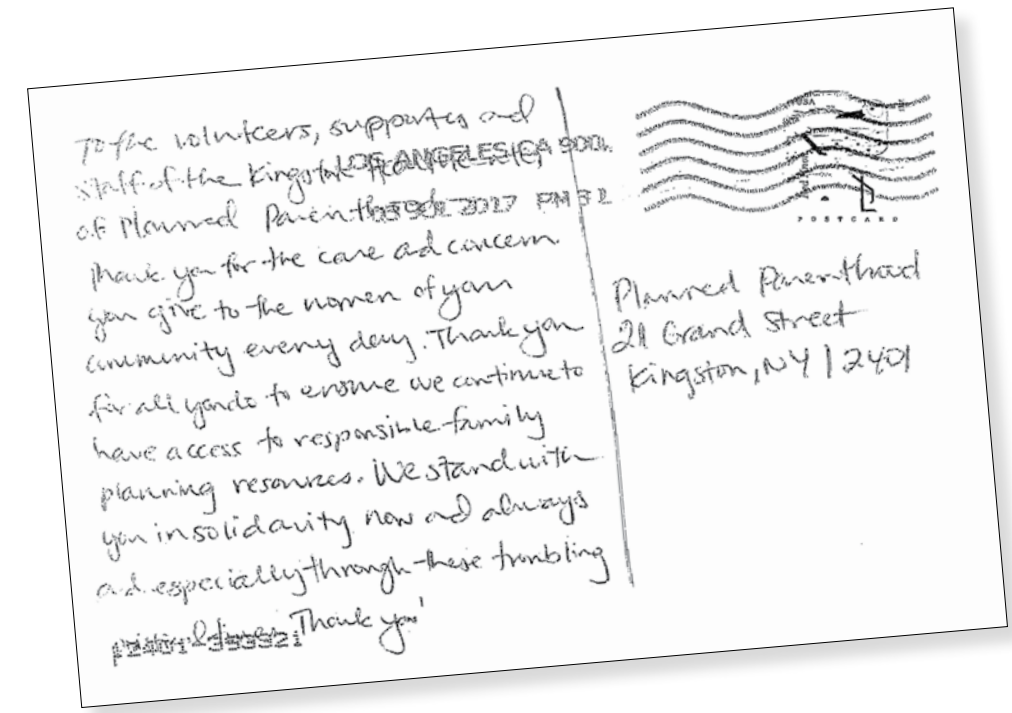 To the volunteers, supporters and
staff of the Kingston Health Center
of Planned Parenthood
Thank you for the care and concern
you give to the women of your
community every day. Thank you
for all you do to ensure we continue to
have access to responsible family
planning resources. We stand with
you in solidarity now and always
and especially through these troubling
political times. Thank you!
LOS ANGELES CA 900
2017 PM 3 L
12401-353321
USA
POSTCARD
Planned Parenthood
21 Grand Street
Kingston, NY 12401